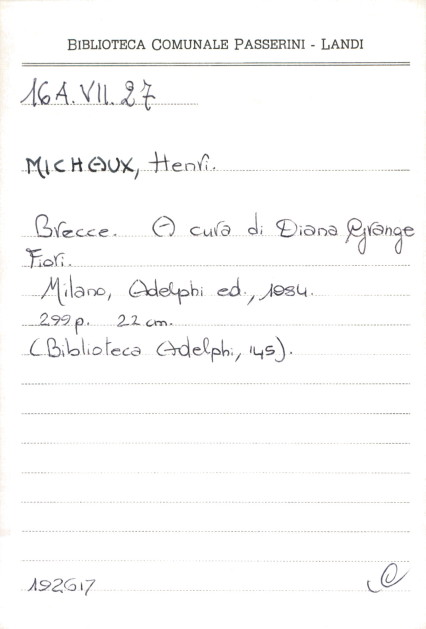 BIBLIOTECA COMUNALE PASSERINI - LANDI
16A.VII.27
MICHAUX, Henri.
Brecce. A cura di Diana Grange
Fiori.
Milano, Adelphi ed., 1984.
299 p. 22 cm.
(Biblioteca Adelphi, 145).
192617